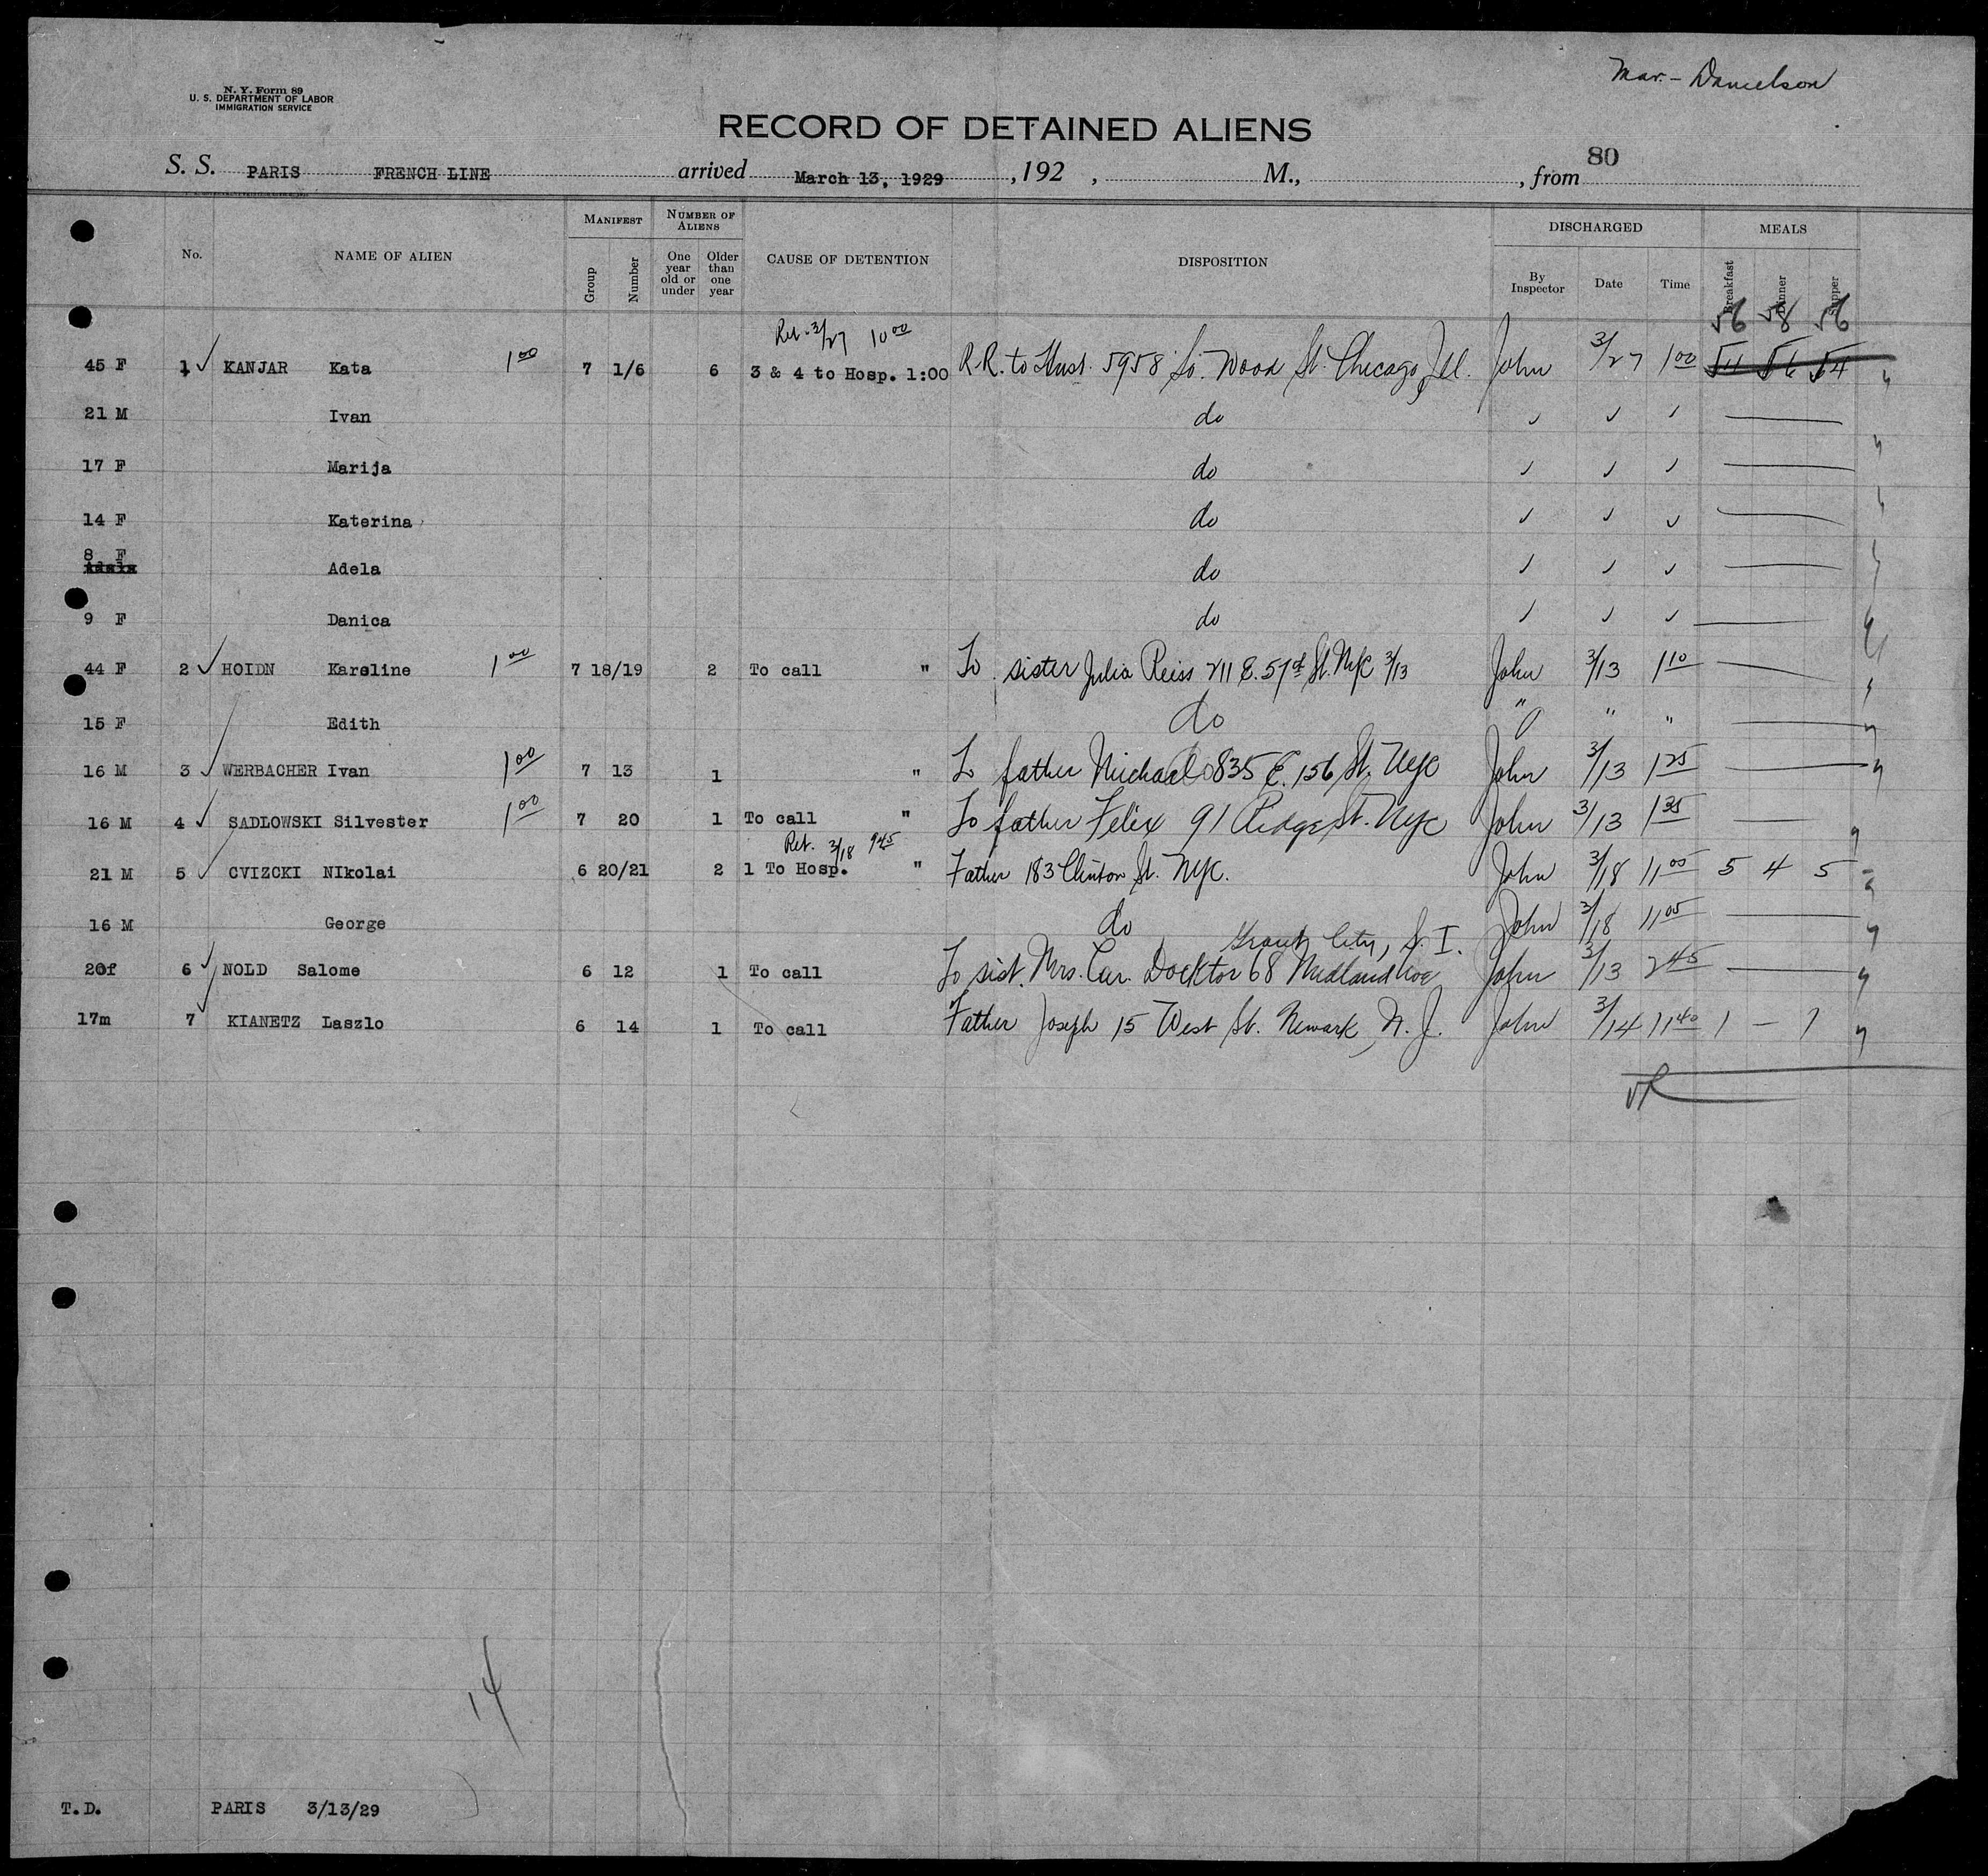 Mar. - Danielson
N. Y. Form 89
U. S. DEPARTMENT OF LABOR
IMMIGRATION SERVICE
RECORD OF DETAINED ALIENS
80
S. S. PARIS FRENCH LINE arrived March 13, 1929, 192 , M., , from
No. NAME OF ALIEN MANIFEST Group Number NUMBER OF ALIENS One year old or under Older than one year CAUSE OF DETENTION DISPOSITION DISCHARGED By Inspector Date Time MEALS Breakfast Dinner Supper
Ret. 3/27 10 00 56 58 56
45 F 1 KANJAR Kata 1 00 7 1/6 6 3 & 4 to Hosp. 1:00 R.R. to Husb. 5958 So. Wood St. Chicago Ill. John 3/27 1 00 54 56 54
21 M Ivan do
17 F Marija do
14 F Katerina do
8 F Adela do
9 F Danica do
44 F 2 HOIDN Karoline 1 00 7 18/19 2 To call " To sister Julia Reiss 211 E. 57th St. NYC 3/13 John 3/13 1 10
15 F Edith do " " "
16 M 3 WERBACHER Ivan 1 00 7 13 1 " To father Michael 835 E. 156 St. NYC John 3/13 1 25
16 M 4 SADLOWSKI Silvester 1 00 7 20 1 To call " To father Felix 91 Ridge St. NYC John 3/13 1 35
Ret. 3/18 9 45
21 M 5 CVIZCKI NIkolai 6 20/21 2 1 To Hosp. " Father 183 Clinton St. NYC. John 3/18 11 05 5 4 5
16 M George do John 3/18 11 05
Grant City, S. I.
20f 6 NOLD Salome 6 12 1 To call To sist. Mrs. Car. Docktor 68 Midland Ave John 3/13 2 45
17m 7 KIANETZ Laszlo 6 14 1 To call Father Joseph 15 West St. Newark, N. J. John 3/14 11 40 1 - 1
14
T.D. PARIS 3/13/29